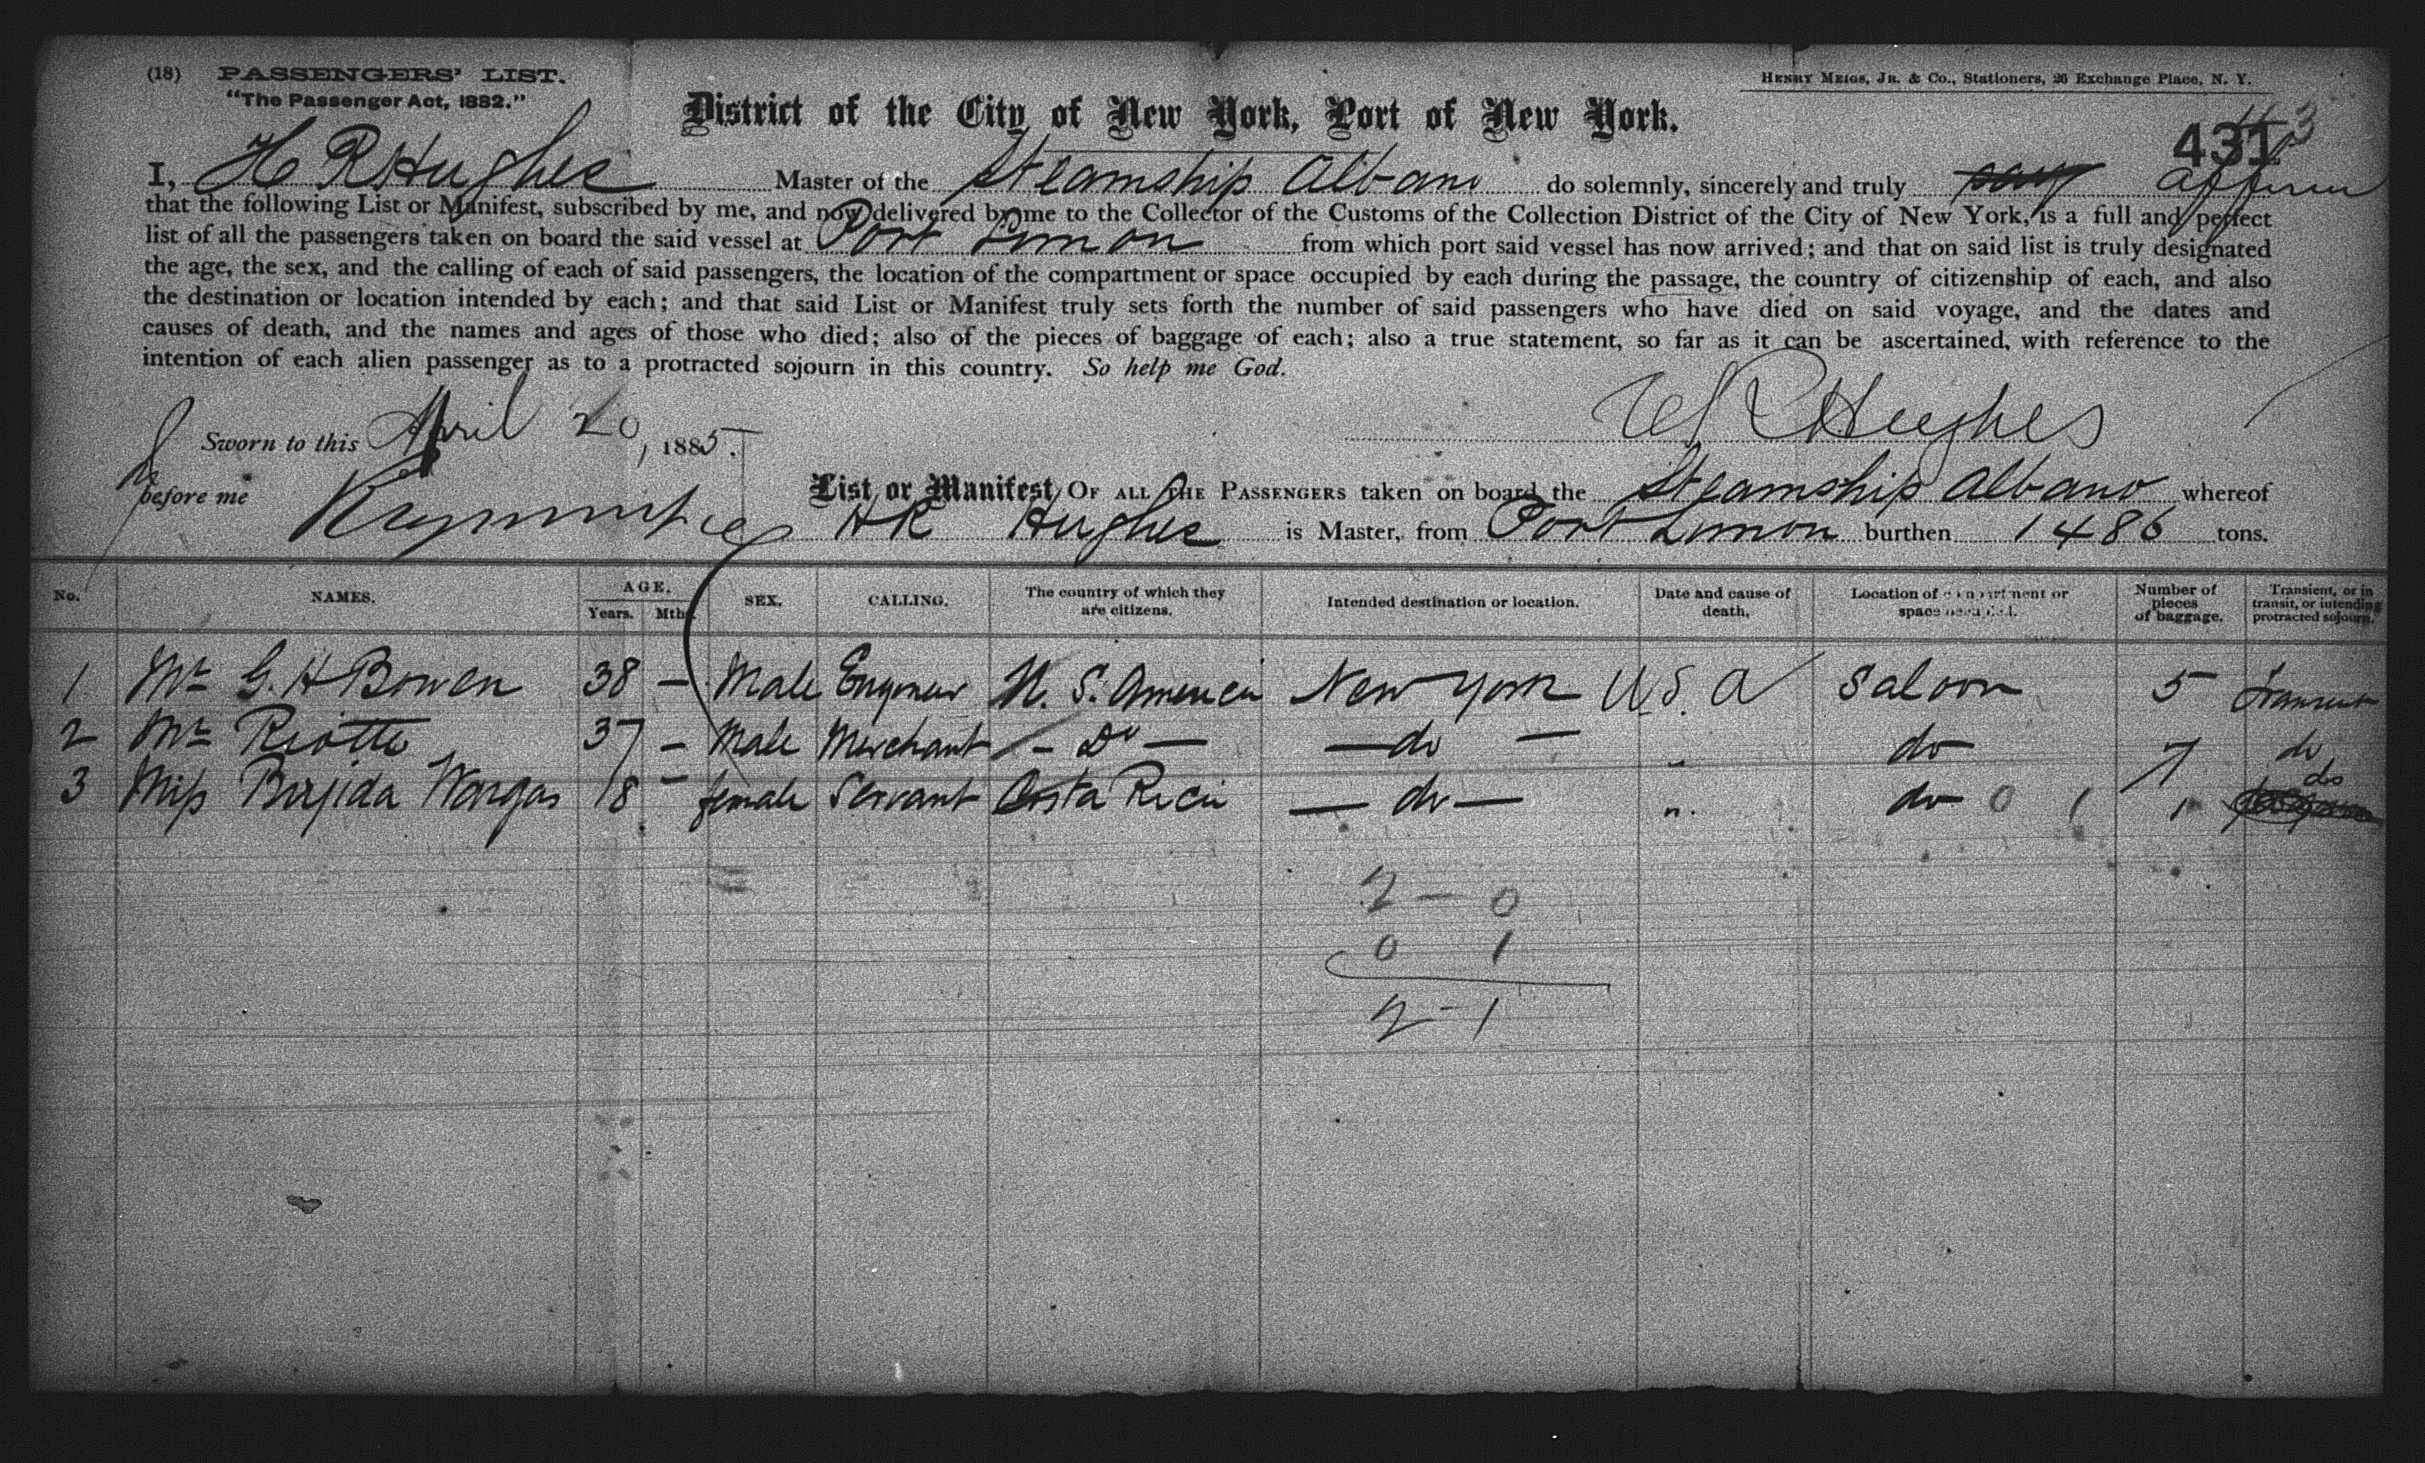 (18) PASSENGERS' LIST.
"The Passenger Act, 1882."
HENRY MEIGS, JR. & CO., Stationers, 26 Exchange Place, N. Y.
District of the City of New York, Port of New York.
431
I, H R Hughes Master of the Steamship Albano do solemnly, sincerely and truly affirm
that the following List or Manifest, subscribed by me, and now delivered by me to the Collector of the Customs of the Collection District of the City of New York, is a full and perfect
list of all the passengers taken on board the said vessel at Port Limon from which port said vessel has now arrived; and that on said list is truly designated
the age, the sex, and the calling of each of said passengers, the location of the compartment or space occupied by each during the passage, the country of citizenship of each, and also
the destination or location intended by each; and that said List or Manifest truly sets forth the number of said passengers who have died on said voyage, and the dates and
causes of death, and the names and ages of those who died; also of the pieces of baggage of each; also a true statement, so far as it can be ascertained, with reference to the
intention of each alien passenger as to a protracted sojourn in this country. So help me God.
Sworn to this April 20, 1885.
R Hughes
before me
List or Manifest OF ALL THE PASSENGERS taken on board the Steamship Albano whereof
H R Hughes is Master, from Port Limon burthen 1486 tons.
No. NAMES. AGE. Years. Mths. SEX. CALLING. The country of which they are citizens. Intended destination or location. Date and cause of death. Location of compartment or space occupied. Number of pieces of baggage. Transient, or in transit, or intending protracted sojourn.
1 Mr G. H Bowen 38 — Male Engineer U. S. America New York U.S.A Saloon 5 Transient
2 Mr Riotte 37 — Male Merchant — Do — — do — " do 7 do
3 Miss Brijida Vargas 18 — female Servant Costa Rica — do — " do 0 1 1 do
2 - 0
0 1
2 - 1